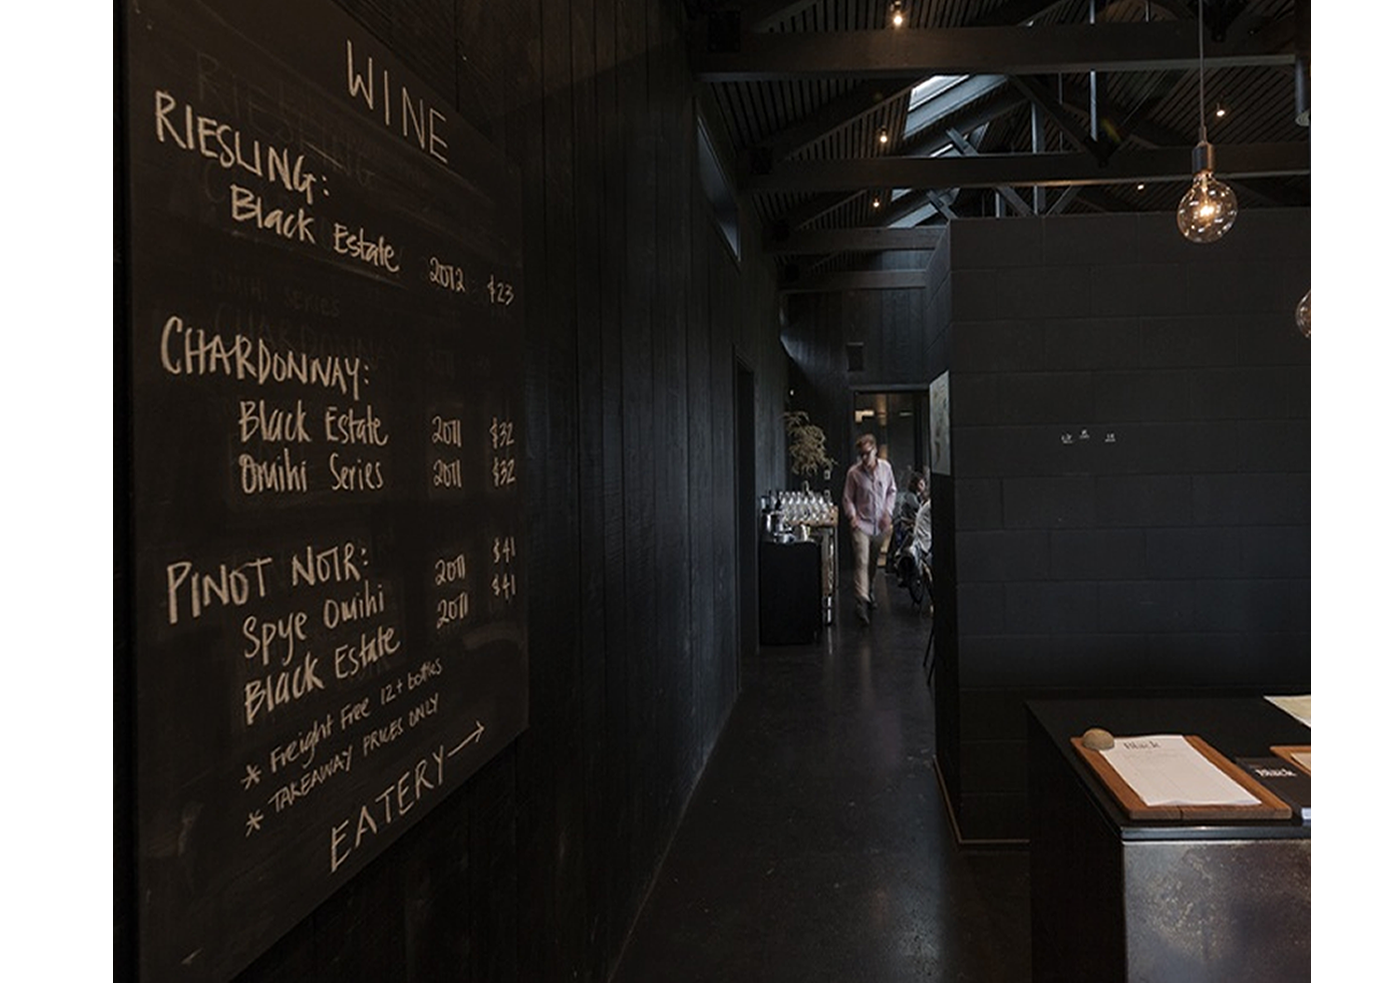 WINE
RIESLING:
Black Estate 2012 $23
CHARDONNAY:
Black Estate 2011 $32
Omihi Series 2011 $32
PINOT NOIR:
Spye Omihi 2011 $41
Black Estate 2011 $41
* Freight Free 12+ bottles
* TAKEAWAY PRICES ONLY
EATERY →
Black
Black